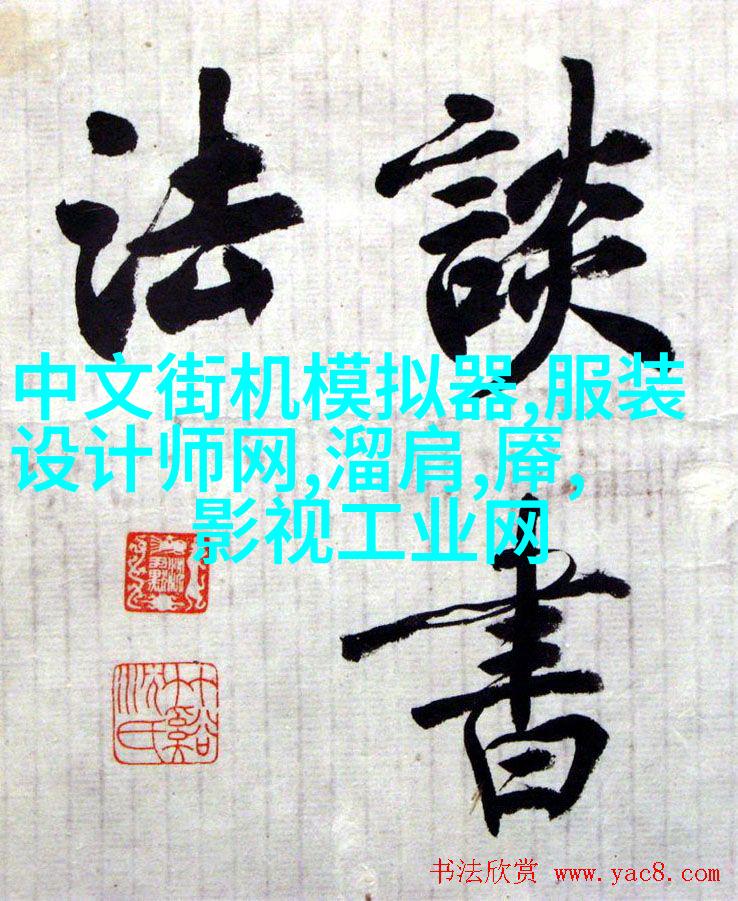 談書
法
中文街机模拟器,服装
设计师网,溜肩,庵,
影视工业网
书法欣赏 www.yac8.com